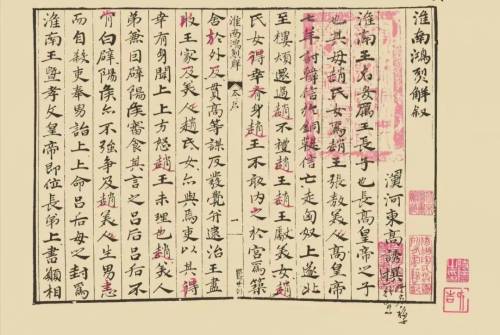 淮南鴻烈解叙
漢河東高誘撰
淮南王名安厲王長子也長高皇帝之子
也其母趙氏女爲趙王張敖美人高皇帝
七年討韓信於銅鞮信亡走匈奴上遂北
至樓煩還過趙不禮趙王趙王獻美女趙
氏女得幸有身趙王不敢内之於宮爲築
淮南鴻烈解
一
舍於外及貫高等謀反發覺并逮治王盡
收王家及美人趙氏女亦與焉吏以其得
幸有身聞上上方怒趙王未理也趙美人
弟兼因辟陽侯審食其言之呂后呂后不
肯白辟陽侯亦不強爭及趙美人生男恚
而自殺吏奉男詣上上命呂后母之封爲
淮南王暨孝文皇帝即位長弟上書願相